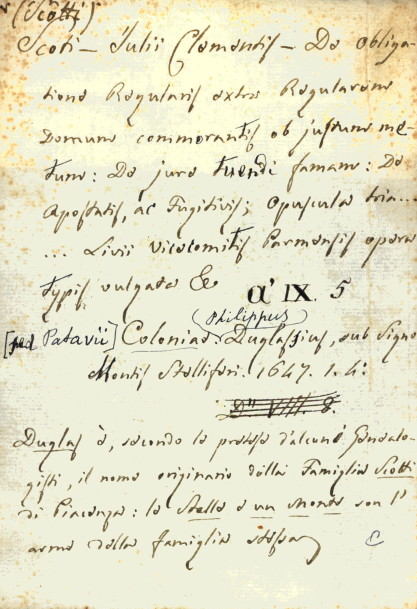 (Scotti)
Scoti - Julii Clementis - De obliga-
tione Regularis extra Regularem
Domum commorantis ob justum me-
tum: De jure tuendi famam: De
Apostatis, ac Fugitivis; Opuscula tria...
... Livii Vicecomitis Parmensis opera
typis vulgata &
a' IX. 5
Philippus
[sed Patavii] Coloniae: Duglassius, sub Signo
Montis Stelliferi. 1647. i. 4:
VIII. 8.
Duglas è, secondo le pretese d'alcuni Genealo-
gisti, il nome originario della Famiglia Scotti
di Piacenza: le Stelle e un Monte son l'
arme della famiglia stessa
C